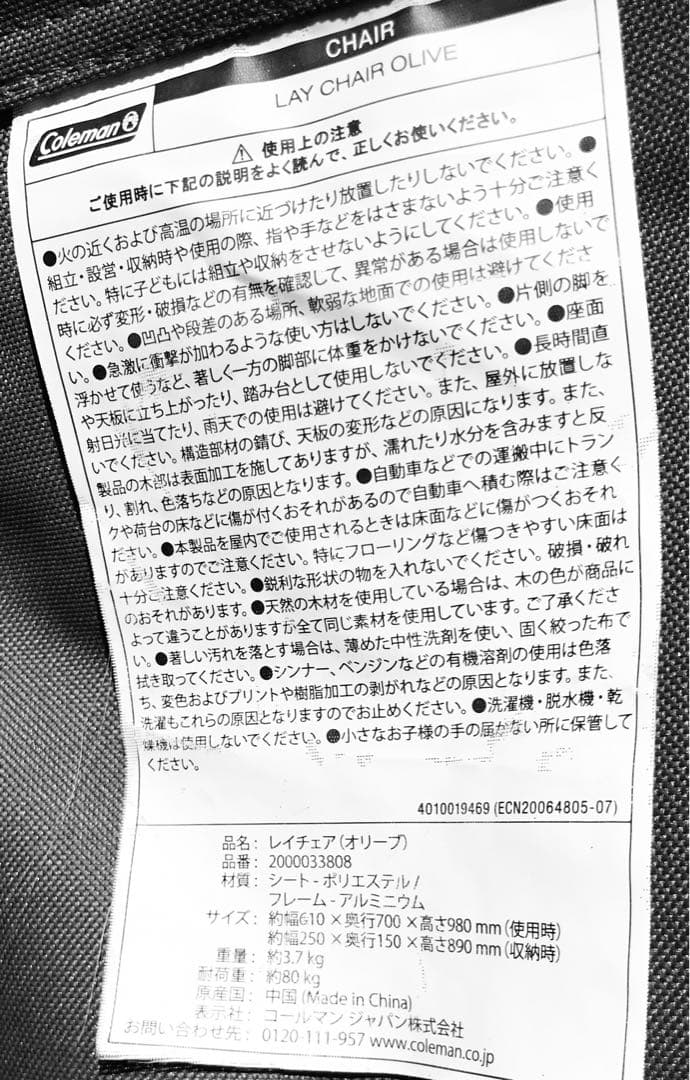 CHAIR
Coleman
LAY CHAIR OLIVE
⚠ 使用上の注意
ご使用時に下記の説明をよく読んで、正しくお使いください。
●火の近くおよび高温の場所に近づけたり放置したりしないでください。●
組立・設営・収納時や使用の際、指や手などをはさまないよう十分ご注意く
ださい。特に子どもには組立や収納をさせないようにしてください。●使用
時に必ず変形・破損などの有無を確認して、異常がある場合は使用しないで
ください。●凹凸や段差のある場所、軟弱な地面での使用は避けてくださ
い。●急激に衝撃が加わるような使い方はしないでください。●片側の脚を
浮かせて使うなど、著しく一方の脚部に体重をかけないでください。●座面
や天板に立ち上がったり、踏み台として使用しないでください。●長時間直
射日光に当てたり、雨天での使用は避けてください。また、屋外に放置しな
いでください。構造部材の錆び、天板の変形などの原因になります。また、
製品の木部は表面加工を施してありますが、濡れたり水分を含みますと反
り、割れ、色落ちなどの原因となります。●自動車などでの運搬中にトラン
クや荷台の床などに傷が付くおそれがあるので自動車へ積む際はご注意く
ださい。●本製品を屋内でご使用されるときは床面などに傷がつくおそれ
がありますのでご注意ください。特にフローリングなど傷つきやすい床面は
十分ご注意ください。●鋭利な形状の物を入れないでください。破損・破れ
のおそれがあります。●天然の木材を使用している場合は、木の色が商品に
よって違うことがありますが全て同じ素材を使用しています。ご了承くださ
い。●著しい汚れを落とす場合は、薄めた中性洗剤を使い、固く絞った布で
拭き取ってください。●シンナー、ベンジンなどの有機溶剤の使用は色落
ち、変色およびプリントや樹脂加工の剥がれなどの原因となります。また、
洗濯もこれらの原因となりますのでお止めください。●洗濯機・脱水機・乾
燥機は使用しないでください。●小さなお子様の手の届かない所に保管して
ください。
4010019469 (ECN20064805-07)
品名： レイチェア(オリーブ)
品番： 2000033808
材質： シート - ポリエステル/
フレーム - アルミニウム
サイズ： 約幅610×奥行700×高さ980 mm (使用時)
約幅250×奥行150×高さ890 mm (収納時)
重量： 約3.7 kg
耐荷重： 約80 kg
原産国： 中国 (Made in China)
表示社： コールマン ジャパン株式会社
お問い合わせ先： 0120-111-957 www.coleman.co.jp